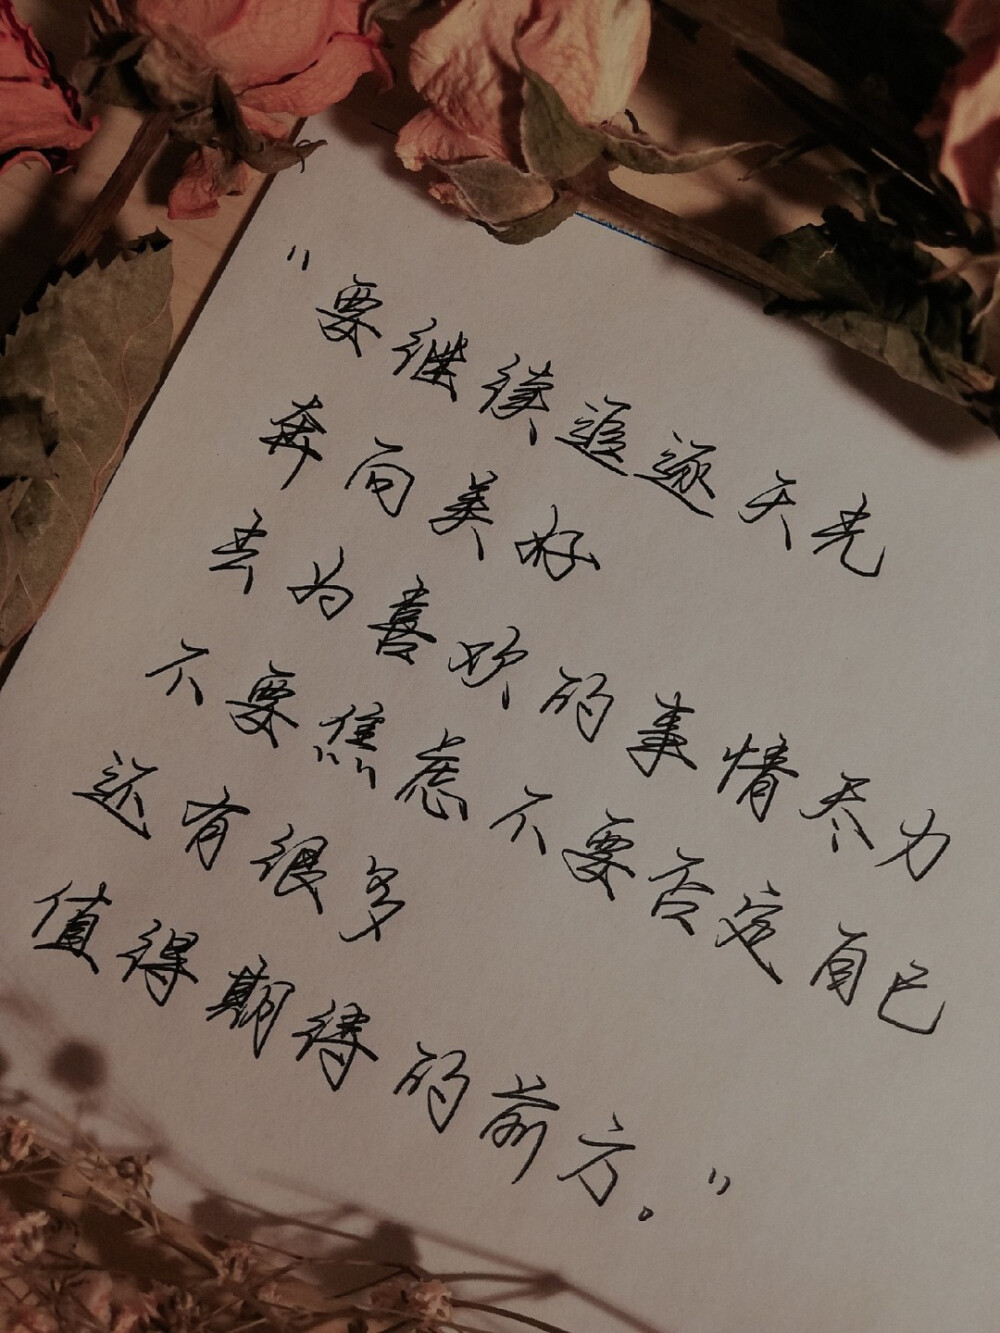 "要继续追逐天光
奔向美好
去为喜欢的事情尽力
不要焦虑不要否定自己
还有很多
值得期待的前方。"